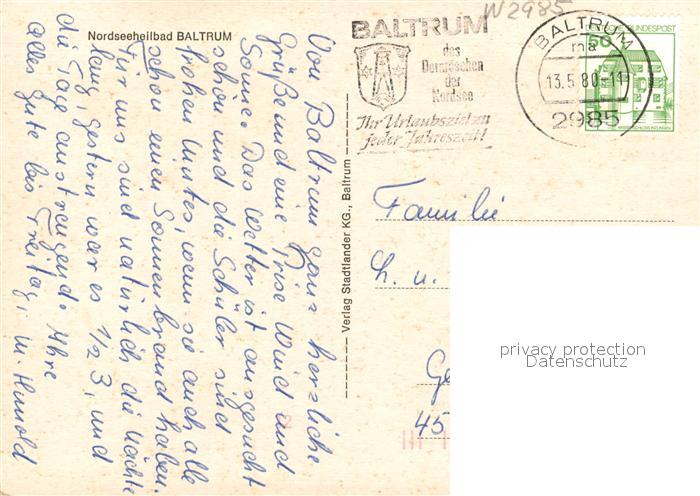 W2985
Nordseeheilbad BALTRUM
BALTRUM
das
Dornröschen
der
Nordsee
Ihr Urlaubsziel zu
jeder Jahreszeit!
BALTRUM
ma
13.5.80-11
2985
50
BUNDESPOST
WASSERSCHLOSS INZLINGEN
Von Baltrum ganz herzliche
Grüße und eine Prise Wind und
Sonne. Das Wetter ist ausgesucht
schön und die Schüler sind
frohen Mutes, wenn sie auch alle
schon einen Sonnenbrand haben.
Für uns sind natürlich die Nächte
lang, gestern war es 1/2 3, und
die Tage anstrengend. Ihre
alles Gute bis Freitag,
Verlag Stadtlander KG., Baltrum
Familie
h. u.
Ge
45
privacy protection
Datenschutz